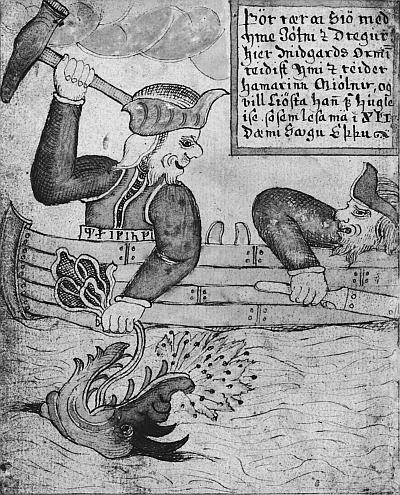 Þör rær a Siö med
hyme Jötni & Dregur
hier Midgards Ormiñ
reidist hmi & reider
hamarinn Miolnir, og
vill Liösta hañ
so sem lesa ma i
Dæmi Sægu Eddu